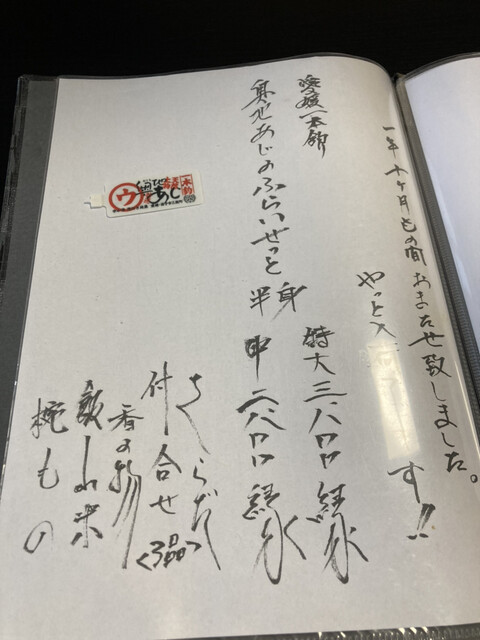 一年十ヶ月もの間おまたせ致しました。
やっと入
す!!
愛媛一本釣
奥地あじのふらいせっと
半身
特大 三、八〇〇
中 二、八〇〇
さらだ
付合せ(3品)
香の物
椀もの
一本釣
奥地あじ